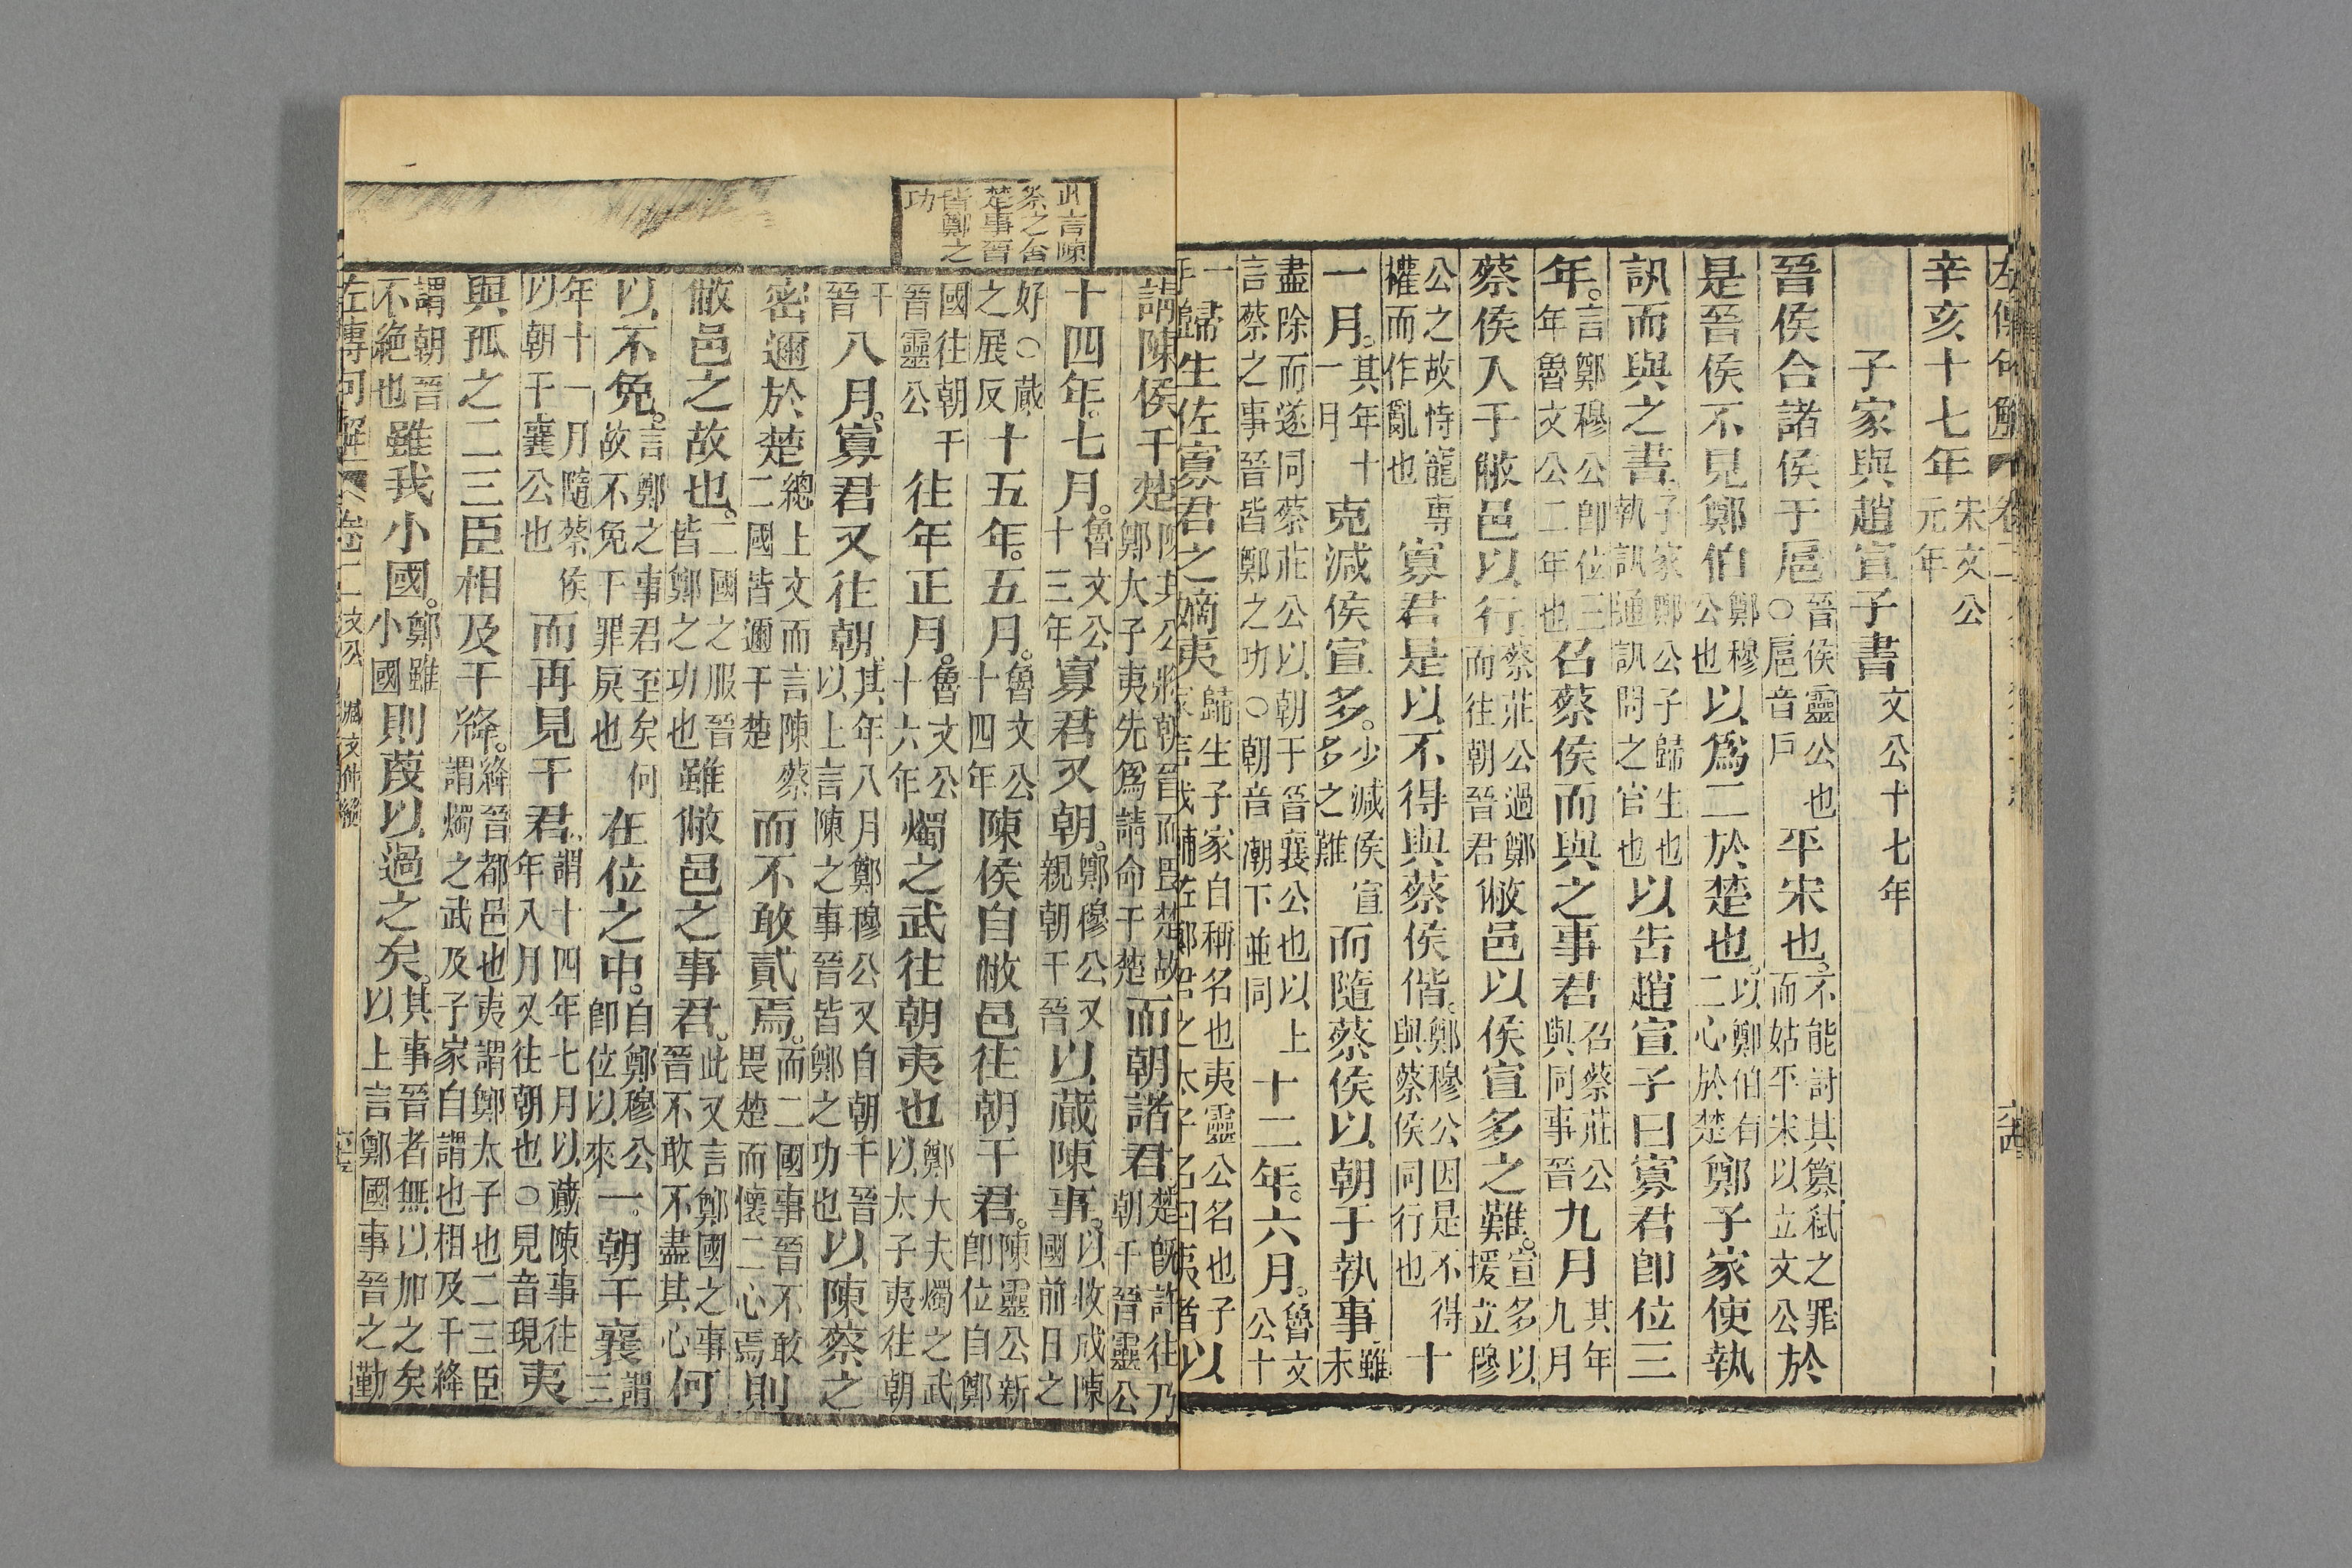 左傳句解 卷二
六四
辛亥十七年宋文公元年
子家與趙宣子書文公十七年
晉侯合諸侯于扈晉侯靈公也○扈音戶平宋也。不能討其篡弒之罪而姑平宋以立文公於
是晉侯不見鄭伯鄭穆公也以爲二於楚也。以鄭伯有二心於楚鄭子家使執
訊而與之書子家鄭公子歸生也執訊通訊問之官也以告趙宣子曰寡君卽位三
年。言鄭穆公卽位三年魯文公二年也召蔡侯而與之事君召蔡莊公與同事晉九月其年九月
蔡侯入于敝邑以行蔡莊公過鄭而往朝晉君敝邑以侯宣多之難。宣多以援立穆
公之故恃寵專權而作亂也寡君是以不得與蔡侯偕。鄭穆公因是不得與蔡侯同行也十
一月。其年十一月克減侯宣多。少減侯宣多之難而隨蔡侯以朝于執事雖未
盡除而遂同蔡莊公以朝于晉襄公也以上言蔡之事晉皆鄭之功○朝音潮下並同十二年。六月。魯文公十
一年歸生佐寡君之嫡夷歸生子家自稱名也夷靈公名也子家言我輔佐鄭君之太子名曰夷者以
此言陳蔡之合楚事晉皆鄭之功
請陳侯于楚陳共公將朝晉而畏楚故鄭太子夷先爲請命于楚而朝諸君楚旣許往乃朝于晉靈公
十四年。七月。魯文公十三年寡君又朝。鄭穆公又親朝于晉以蕆陳事。以收成陳國前日之
好○蕆之展反十五年。五月。魯文公十四年陳侯自敝邑往朝于君。陳靈公新卽位自鄭
國往朝于晉靈公往年正月。魯文公十六年燭之武往朝夷也鄭大夫燭之武以太子夷往朝
于晉八月。寡君又往朝。其年八月鄭穆公又自朝于晉以上言陳之事晉皆鄭之功也以陳蔡之
密邇於楚總上文而言陳蔡二國皆邇于楚而不敢貳焉。而二國事晉不敢畏楚而懷二心焉則
敝邑之故也。二國之服晉皆鄭之功也雖敝邑之事君。此又言鄭國之事晉不敢不盡其心何
以不免。言鄭之事君至矣何故不免于罪戾也在位之中。自鄭穆公卽位以來一朝于襄謂三
年十一月隨蔡侯以朝于襄公也而再見于君謂十四年七月以蕆陳事往年八月又往朝也○見音現夷
與孤之二三臣相及于絳。絳晉都邑也夷謂鄭太子也二三臣謂燭之武及子家自謂也相及于絳
謂朝晉不絶也雖我小國。鄭雖小國則蔑以過之矣。其事晉者無以加之矣以上言鄭國事晉之勤
左傳句解 卷二 文公